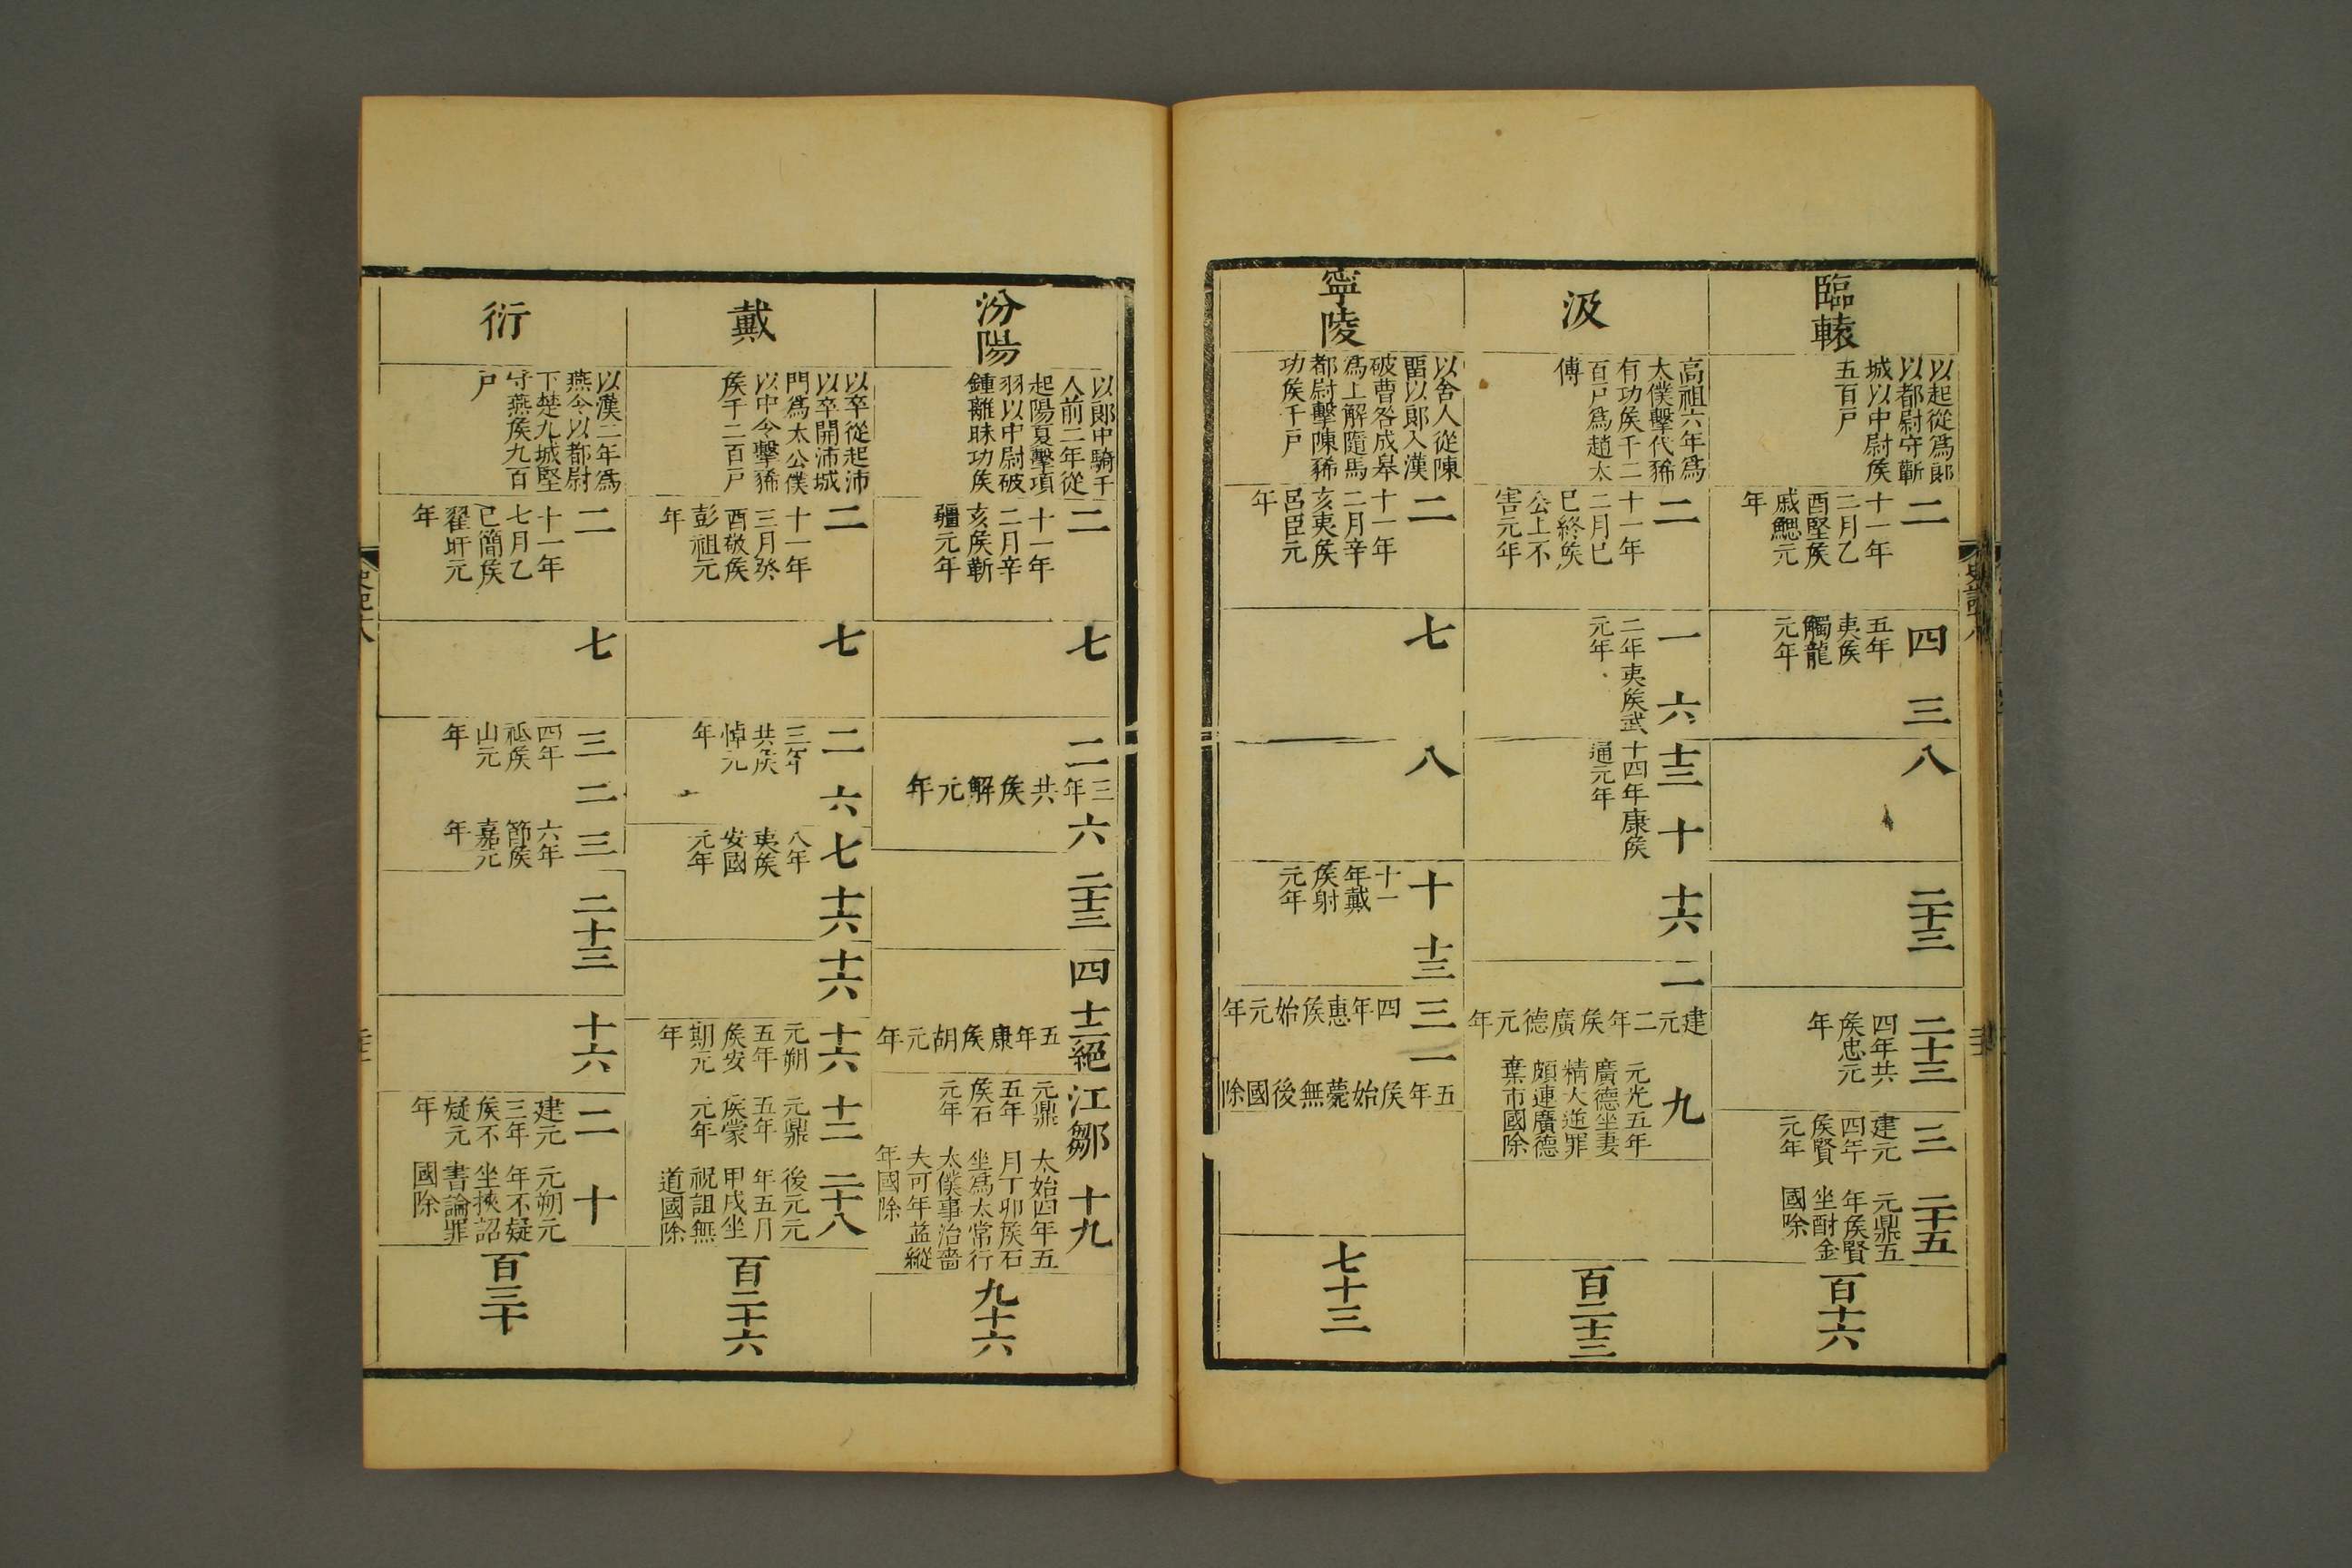 臨轅
以起從爲郎
以都尉守蘄
城以中尉侯
五百戸
二
十一年
二月乙
酉堅侯
戚鰓元
年
四
五年
夷侯
觸龍
元年
三
八
二十三
二十三
四年共
侯忠元
年
三
建元
四年
侯賢
元年
二十五
元鼎五
年侯賢
坐酎金
國除
百十六
汲
高祖六年爲
太僕擊代豨
有功侯千二
百戸爲趙太
傅
二
十一年
二月己
巳終侯
公上不
害元年
一
二年夷侯武
元年
六
十三
十四年康侯
通元年
十
十六
二
建元二年侯廣德元年
九
元光五年
廣德坐妻
精大逆罪
頗連廣德
棄市國除
百二十三
寧陵
以舍人從陳
畱以郎入漢
破曹咎成皋
爲上解隨馬
都尉擊陳豨
功侯千戸
二
十一年
二月辛
亥夷侯
呂臣元
年
七
八
十
十一
年戴
侯射
元年
十三
三
四年惠侯始元年
一
五年侯始薨無後國除
七十三
汾陽
以郎中騎千
人前二年從
起陽夏擊項
羽以中尉破
鍾離眛功侯
二
十一年
二月辛
亥侯靳
疆元年
七
二
三年共侯解元年
六
二十三
四
五年康侯胡元年
十二絕
江鄒
元鼎
五年
侯石
元年
十九
太始四年五
月丁卯侯石
坐爲太常行
太僕事治嗇
夫可年益縱
年國除
九十六
戴
以卒從起沛
以卒開沛城
門爲太公僕
以中令擊豨
侯千二百戸
二
十一年
三月癸
酉敬侯
彭祖元
年
七
二
三年
共侯
悼元
年
六
七
八年
夷侯
安國
元年
十六
十六
十六
元朔
五年
侯安
期元
年
十二
元鼎
五年
侯蒙
元年
二十八
後元元
年五月
甲戌坐
祝詛無
道國除
百二十六
衍
以漢二年爲
燕令以都尉
下楚九城堅
守燕侯九百
戸
二
十一年
七月乙
巳簡侯
翟盱元
年
七
三
四年
祗侯
山元
年
二
三
六年
節侯
嘉元
年
二十三
十六
二
建元
三年
侯不
疑元
年
十
元朔元
年不疑
坐挾詔
書論罪
國除
百三十